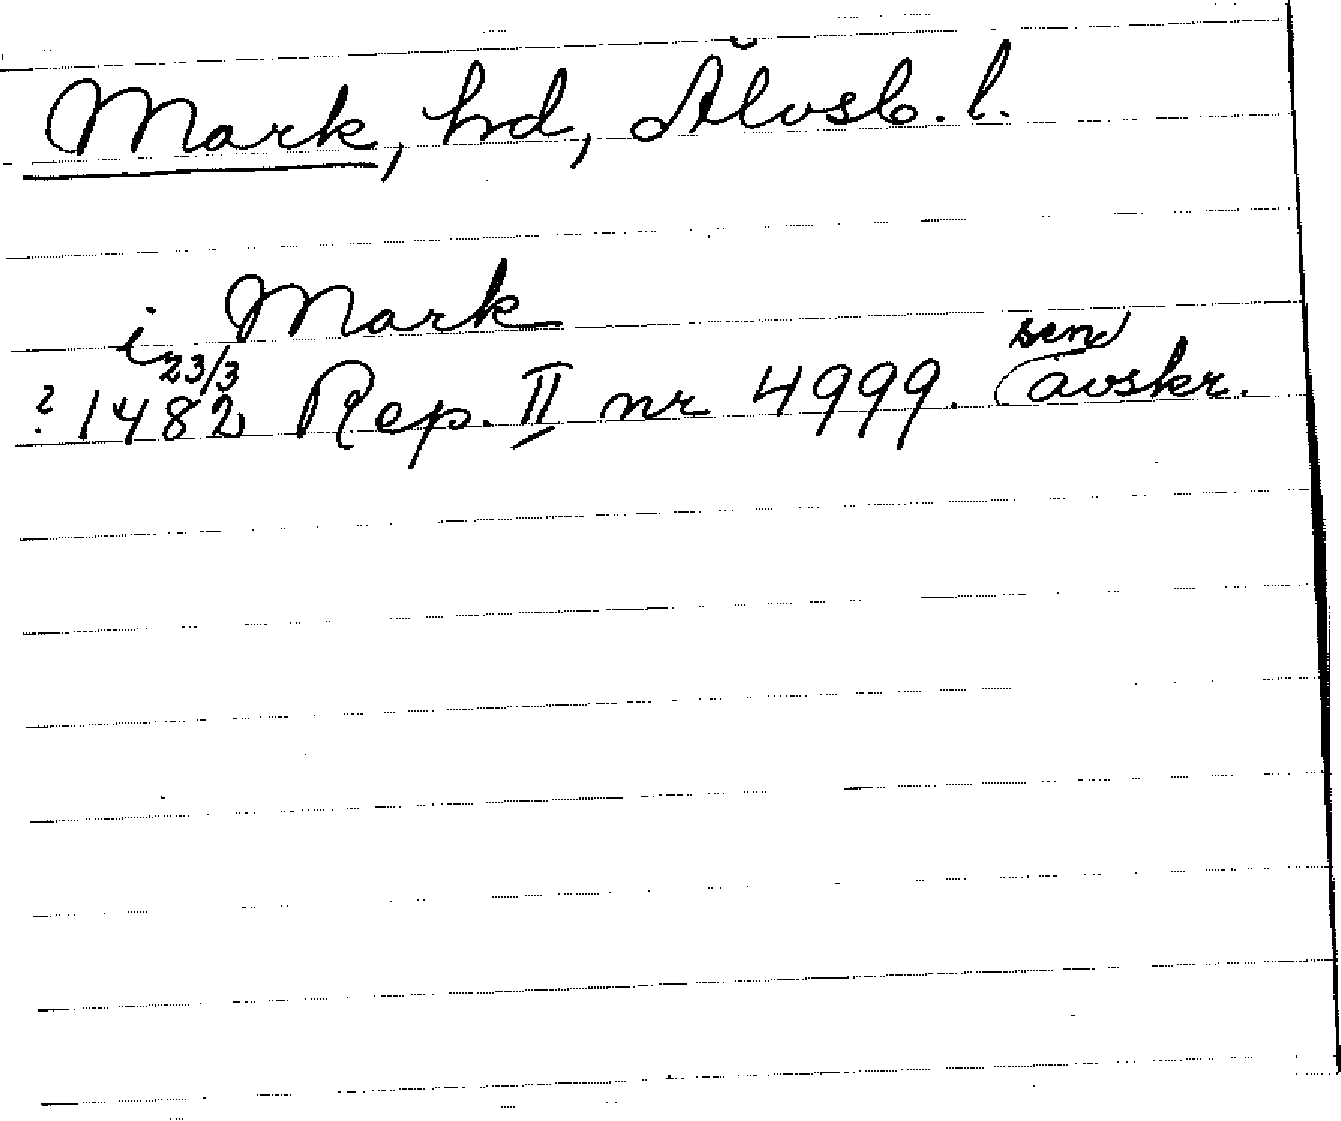 Mark, hd, Älvsb. l.
i Mark
? 1482 23/3 Rep. II nr 4999. sen avskr.